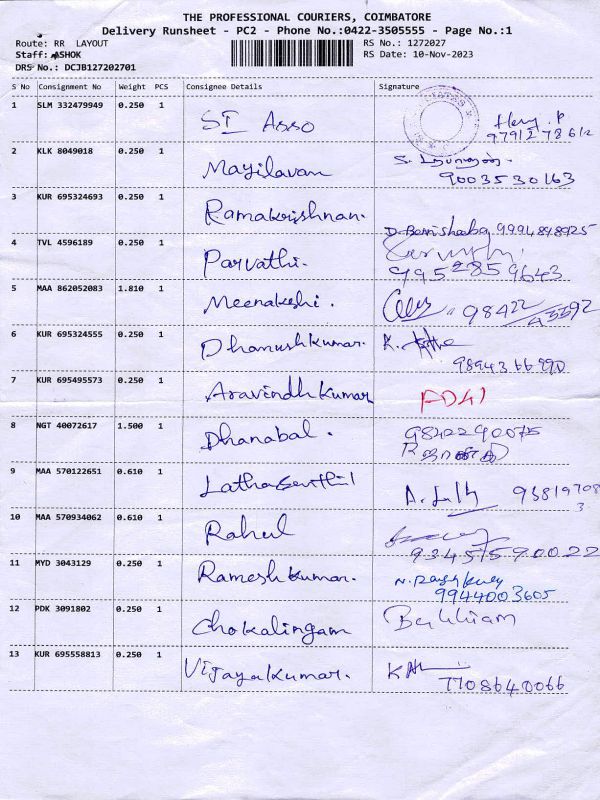 THE PROFESSIONAL COURIERS, COIMBATORE
Delivery Runsheet - PC2 - Phone No.:0422-3505555 - Page No.:1
Route: RR LAYOUT
Staff: ASHOK
DRS No.: DCJB127202701
RS No.: 1272027
RS Date: 10-Nov-2023
S No Consignment No Weight PCS Consignee Details Signature
1 SLM 332479949 0.250 1 ST Asso
2 KLK 8049018 0.250 1 Mayilavan 9003530163
3 KUR 695324693 0.250 1 Ramakrishnan.
4 TVL 4596189 0.250 1 Parvathi. 9952859643
5 MAA 862052083 1.810 1 Meenakshi. 98422
6 KUR 695324555 0.250 1 Dhanushkumar.
7 KUR 695495573 0.250 1 Aravindh Kumar
8 NGT 40072617 1.500 1 Dhanabal. 9842290075
9 MAA 570122651 0.610 1 Lathasenthil
10 MAA 570934062 0.610 1 Rahul 9345590022
11 MYD 3043129 0.250 1 Ramesh kumar. 9944003605
12 PDK 3091802 0.250 1 Chokalingam
13 KUR 695558813 0.250 1 Vijayakumar. 7708640066